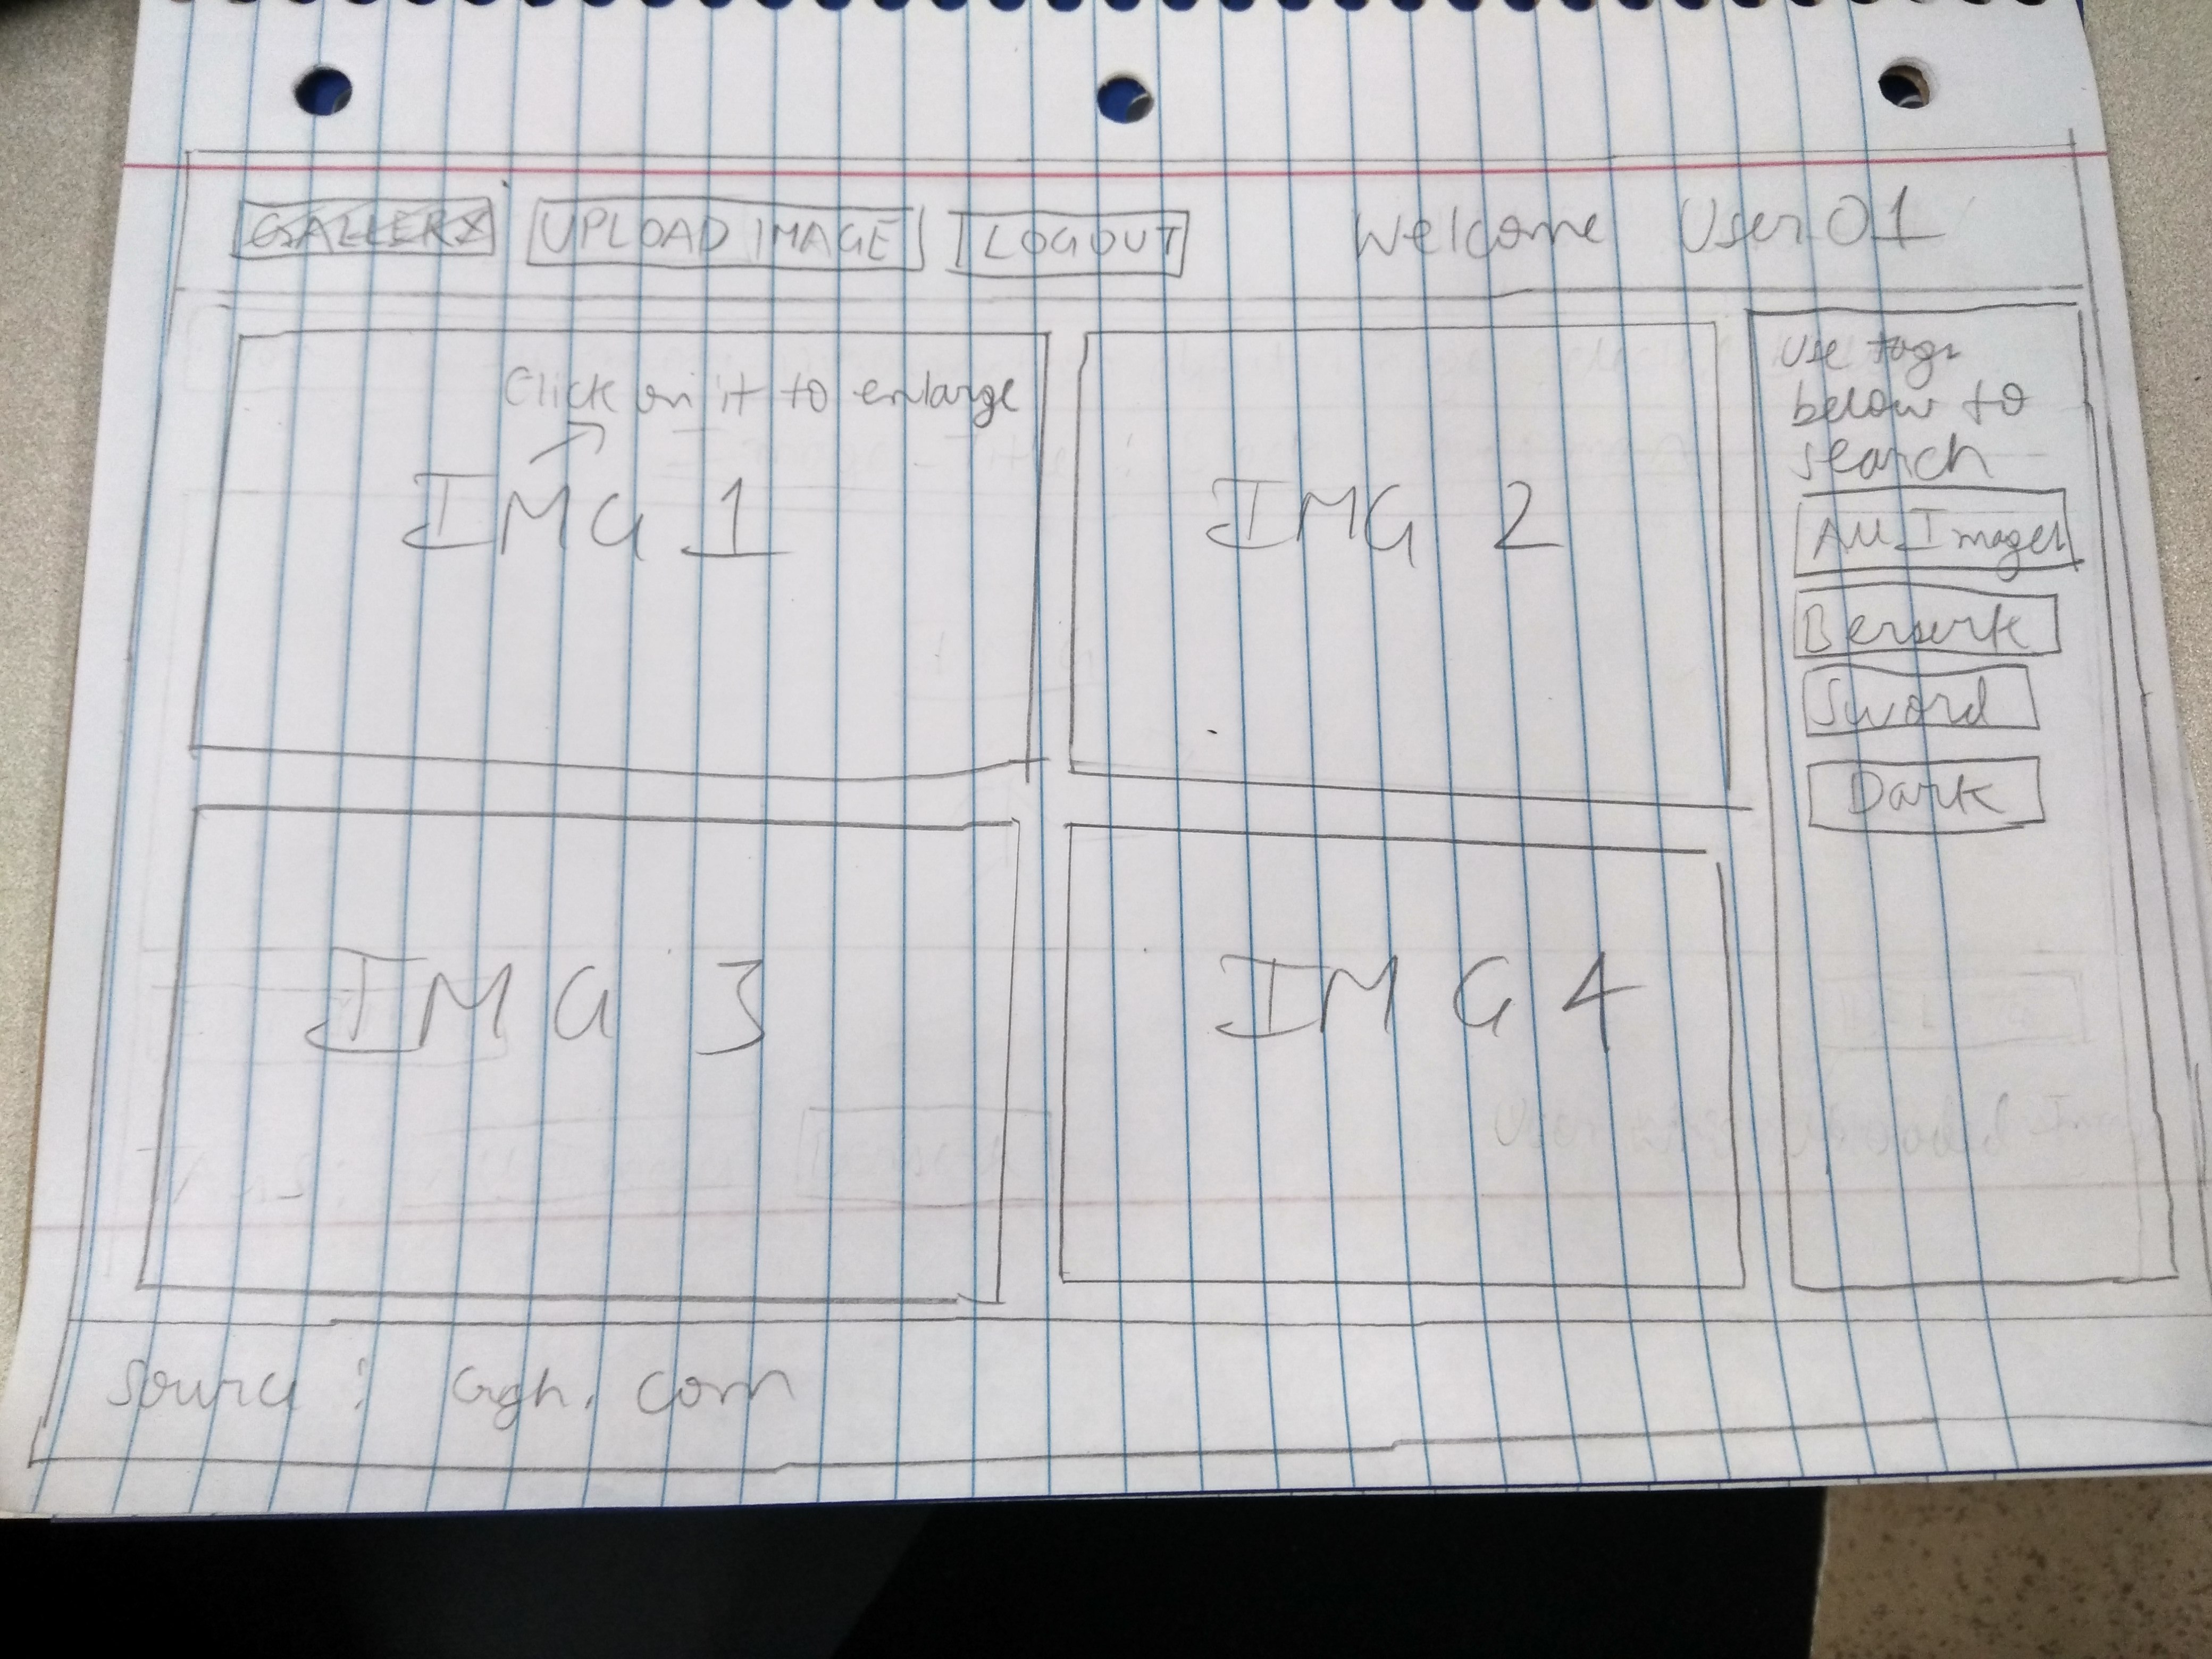 GALLERY UPLOAD IMAGE LOGOUT Welcome User01
Click on it to enlarge
IMG 1
IMG 2
Use tags
below to
search
All Images
Berserk
Sword
Dark
IMG 3
IMG 4
Source :